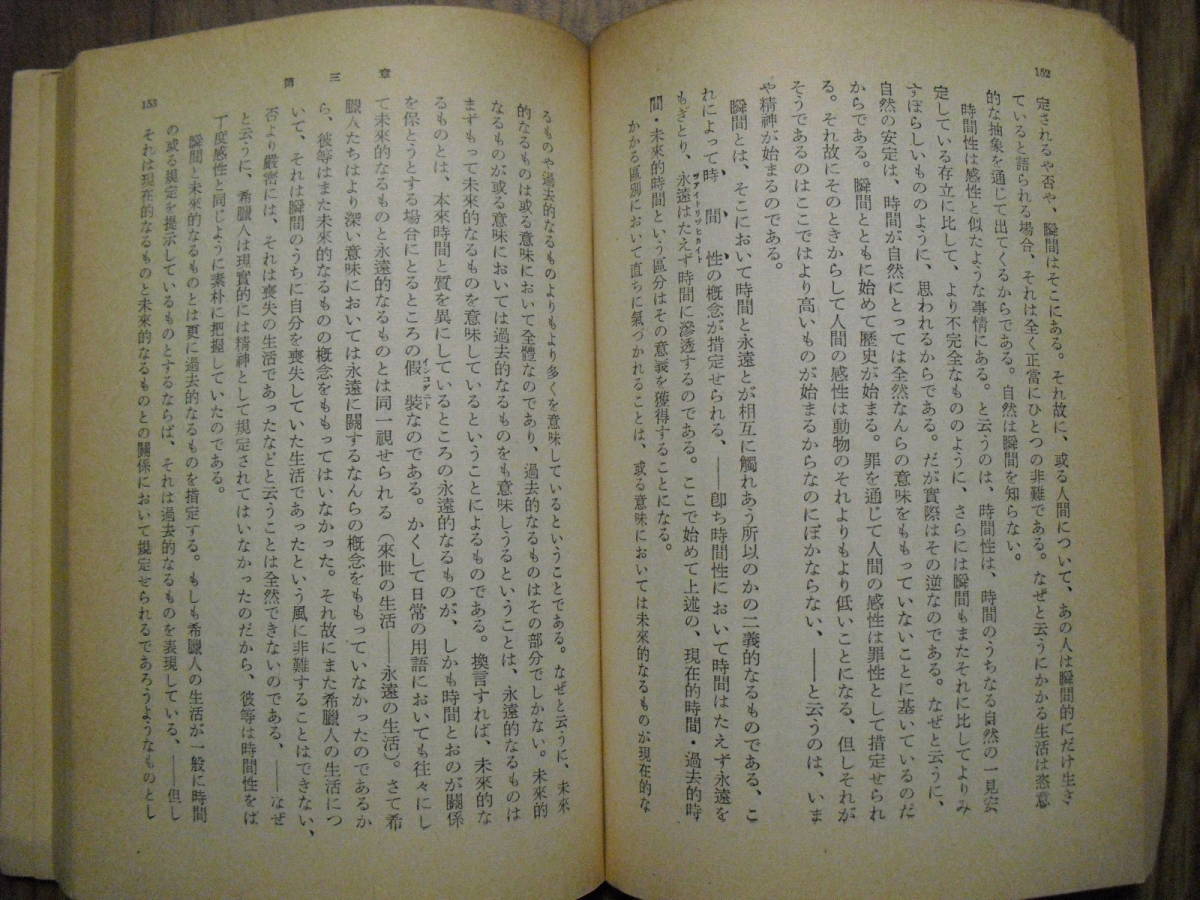 152
定されるや否や、瞬間はそこにある。それ故に、或る人間について、あの人は瞬間的にだけ生き
ていると語られる場合、それは全く正當にひとつの非難である。なぜと云うにかかる生活は恣意
的な抽象を通じて出てくるからである。自然は瞬間を知らない。
時間性は感性と似たような事情にある。と云うのは、時間性は、時間のうちなる自然の一見宏
定している存立に比して、より不完全なもののように、さらには瞬間もまたそれに比してよりみ
すぼらしいもののように、思われるからである。だが實際はその逆なのである。なぜと云うに、
自然の安定は、時間が自然にとっては全然なんらの意味をもっていないことに基いているのだ
からである。瞬間とともに始めて歷史が始まる。罪を通じて人間の感性は罪性として措定せられ
る。それ故にそのときからして人間の感性は動物のそれよりもより低いことになる、但しそれが
そうであるのはここではより高いものが始まるからなのにほかならない、――と云うのは、いま
や精神が始まるのである。
瞬間とは、そこにおいて時間と永遠とが相互に觸れあう所以のかの二義的なるものである、こ
れによって時間性の概念が措定せられる、――卽ち時間性において時間はたえず永遠を
もぎとり、永遠はたえず時間に滲透するのである。ここで始めて上述の、現在的時間・過去的時
間・未來的時間という區分はその意義を獲得することになる。
かかる區別において直ちに氣づかれることは、或る意味においては未來的なるものが現在的な
第三章
153
るものや過去的なるものよりもより多くを意味しているということである。なぜと云うに、未來
的なるものは或る意味において全體なのであり、過去的なるものはその部分でしかない。未來的
なるものが或る意味においては過去的なるものをも意味しうるということは、永遠的なるものは
まずもって未來的なるものを意味しているということによるものである。換言すれば、未來的な
るものとは、本來時間と質を異にしているところの永遠的なるものが、しかも時間とおのが關係
を保とうとする場合にとるところの假裝なのである。かくして日常の用語においても往々にし
インコグニト
て未來的なるものと永遠的なるものとは同一視せられる（來世の生活――永遠の生活）。さて希
臘人たちはより深い意味においては永遠に關するなんらの概念をももっていなかったのであるか
ら、彼等はまた未來的なるものの概念をももってはいなかった。それ故にまた希臘人の生活につ
いて、それは瞬間のうちに自分を喪失していた生活であったという風に非難することはできない、
否より嚴密には、それは喪失の生活であったなどと云うことは全然できないのである、――なぜ
と云うに、希臘人は現實的には精神として規定されてはいなかったのだから、彼等は時間性をば
丁度感性と同じように素朴に把握していたのである。
瞬間と未來的なるものとは更に過去的なるものを指定する。もしも希臘人の生活が一般に時間
の或る規定を提示しているものとするならば、それは過去的なるものを表現している、――但し
それは現在的なるものと未來的なるものとの關係において規定せられるであろうようなものとし